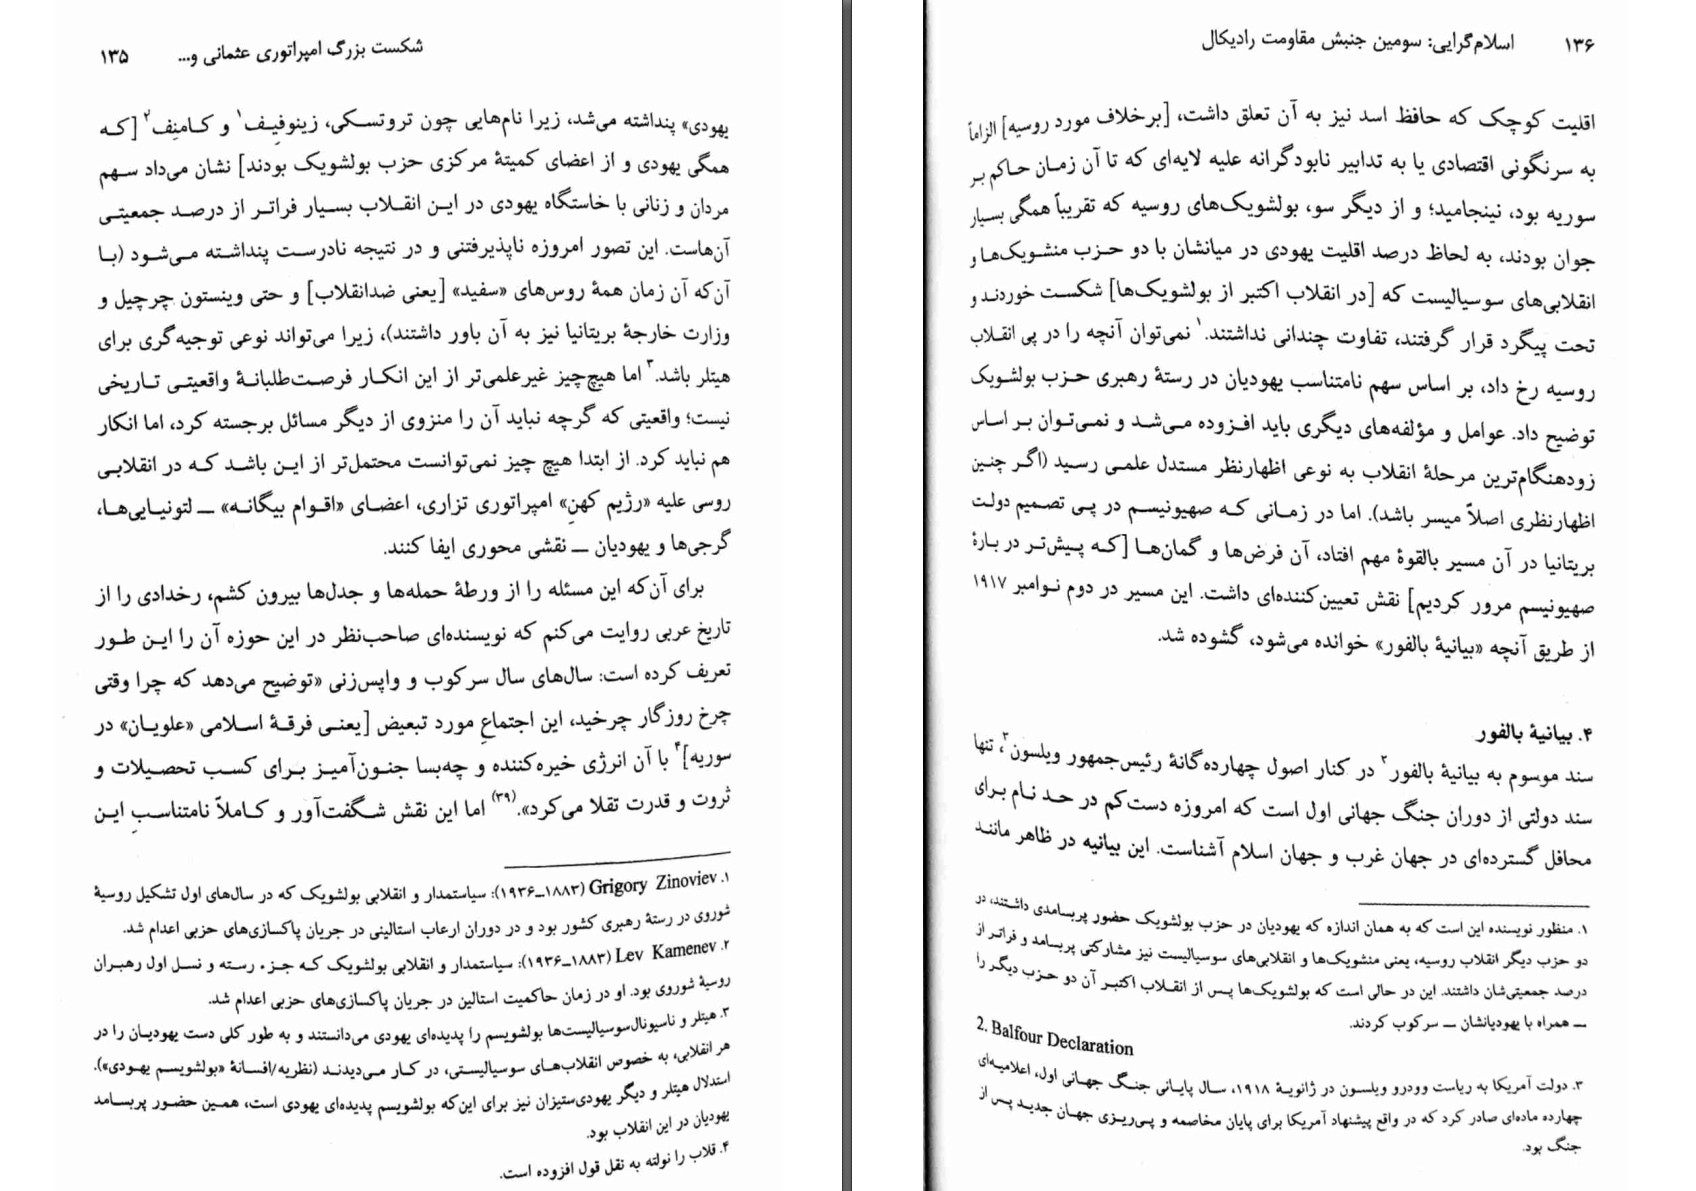 شکست بزرگ امپراتوری عثمانی و... ۱۳۵
یهودی» پنداشته می‌شد، زیرا نام‌هایی چون تروتسکی، زینوفیِف۱ و کامنِف۲ [که
همگی یهودی و از اعضای کمیتهٔ مرکزی حزب بولشویک بودند] نشان می‌داد سهم
مردان و زنانی با خاستگاه یهودی در این انقلاب بسیار فراتر از درصد جمعیتی
آن‌هاست. این تصور امروزه ناپذیرفتنی و در نتیجه نادرست پنداشته می‌شود (با
آن‌که آن زمان همهٔ روس‌های «سفید» [یعنی ضدانقلاب] و حتی وینستون چرچیل و
وزارت خارجهٔ بریتانیا نیز به آن باور داشتند)، زیرا می‌تواند نوعی توجیه‌گری برای
هیتلر باشد.۳ اما هیچ‌چیز غیرعلمی‌تر از این انکار فرصت‌طلبانهٔ واقعیتی تاریخی
نیست؛ واقعیتی که گرچه نباید آن را منزوی از دیگر مسائل برجسته کرد، اما انکار
هم نباید کرد. از ابتدا هیچ چیز نمی‌توانست محتمل‌تر از این باشد که در انقلابی
روسی علیه «رژیم کهنِ» امپراتوری تزاری، اعضای «اقوام بیگانه» ــ لتونیایی‌ها،
گرجی‌ها و یهودیان ــ نقشی محوری ایفا کنند.
برای آن‌که این مسئله را از ورطهٔ حمله‌ها و جدل‌ها بیرون کشم، رخدادی را از
تاریخ عربی روایت می‌کنم که نویسنده‌ای صاحب‌نظر در این حوزه آن را این طور
تعریف کرده است: سال‌های سال سرکوب و واپس‌زنی «توضیح می‌دهد که چرا وقتی
چرخ روزگار چرخید، این اجتماعِ مورد تبعیض [یعنی فرقهٔ اسلامی «علویان» در
سوریه]۴ با آن انرژی خیره‌کننده و چه‌بسا جنون‌آمیز برای کسب تحصیلات و
ثروت و قدرت تقلا می‌کرد».(۳۹) اما این نقش شگفت‌آور و کاملاً نامتناسبِ این
۱. Grigory Zinoviev (۱۸۸۳ـ۱۹۳۶): سیاستمدار و انقلابی بولشویک که در سال‌های اول تشکیل روسیهٔ
شوروی در رستهٔ رهبری کشور بود و در دوران ارعاب استالینی در جریان پاکسازی‌های حزبی اعدام شد.
۲. Lev Kamenev (۱۸۸۳ـ۱۹۳۶): سیاستمدار و انقلابی بولشویک که جزء رسته و نسل اول رهبران
روسیهٔ شوروی بود. او در زمان حاکمیت استالین در جریان پاکسازی‌های حزبی اعدام شد.
۳. هیتلر و ناسیونال‌سوسیالیست‌ها بولشویسم را پدیده‌ای یهودی می‌دانستند و به طور کلی دست یهودیان را در
هر انقلابی، به خصوص انقلاب‌های سوسیالیستی، در کار می‌دیدند (نظریه/افسانهٔ «بولشویسم یهودی»).
استدلال هیتلر و دیگر یهودی‌ستیزان نیز برای این‌که بولشویسم پدیده‌ای یهودی است، همین حضور پربسامد
یهودیان در این انقلاب بود.
۴. قلاب را نولته به نقل قول افزوده است.
۱۳۶ اسلام‌گرایی: سومین جنبش مقاومت رادیکال
اقلیت کوچک که حافظ اسد نیز به آن تعلق داشت، [برخلاف مورد روسیه] الزاماً
به سرنگونی اقتصادی یا به تدابیر نابودگرانه علیه لایه‌ای که تا آن زمان حاکم بر
سوریه بود، نینجامید؛ و از دیگر سو، بولشویک‌های روسیه که تقریباً همگی بسیار
جوان بودند، به لحاظ درصد اقلیت یهودی در میانشان با دو حزب منشویک‌ها و
انقلابی‌های سوسیالیست که [در انقلاب اکتبر از بولشویک‌ها] شکست خوردند و
تحت پیگرد قرار گرفتند، تفاوت چندانی نداشتند.۱ نمی‌توان آنچه را در پی انقلاب
روسیه رخ داد، بر اساس سهم نامتناسب یهودیان در رستهٔ رهبری حزب بولشویک
توضیح داد. عوامل و مؤلفه‌های دیگری باید افزوده می‌شد و نمی‌توان بر اساس
زودهنگام‌ترین مرحلهٔ انقلاب به نوعی اظهارنظر مستدل علمی رسید (اگر چنین
اظهارنظری اصلاً میسر باشد). اما در زمانی که صهیونیسم در پی تصمیم دولت
بریتانیا در آن مسیر بالقوهٔ مهم افتاد، آن فرض‌ها و گمان‌ها [که پیش‌تر در بارهٔ
صهیونیسم مرور کردیم] نقش تعیین‌کننده‌ای داشت. این مسیر در دوم نوامبر ۱۹۱۷
از طریق آنچه «بیانیهٔ بالفور» خوانده می‌شود، گشوده شد.
۴. بیانیهٔ بالفور
سند موسوم به بیانیهٔ بالفور۲ در کنار اصول چهارده‌گانهٔ رئیس‌جمهور ویلسون۳، تنها
سند دولتی از دوران جنگ جهانی اول است که امروزه دست‌کم در حد نام برای
محافل گسترده‌ای در جهان غرب و جهان اسلام آشناست. این بیانیه در ظاهر مانند
۱. منظور نویسنده این است که به همان اندازه که یهودیان در حزب بولشویک حضور پربسامدی داشتند، در
دو حزب دیگر انقلاب روسیه، یعنی منشویک‌ها و انقلابی‌های سوسیالیست نیز مشارکتی پربسامد و فراتر از
درصد جمعیتی‌شان داشتند. این در حالی است که بولشویک‌ها پس از انقلاب اکتبر آن دو حزب دیگر را
ــ همراه با یهودیانشان ــ سرکوب کردند.
2. Balfour Declaration
۳. دولت آمریکا به ریاست وودرو ویلسون در ژانویهٔ ۱۹۱۸، سال پایانی جنگ جهانی اول، اعلامیه‌ای
چهارده ماده‌ای صادر کرد که در واقع پیشنهاد آمریکا برای پایان مخاصمه و پی‌ریزی جهان جدید پس از
جنگ بود.